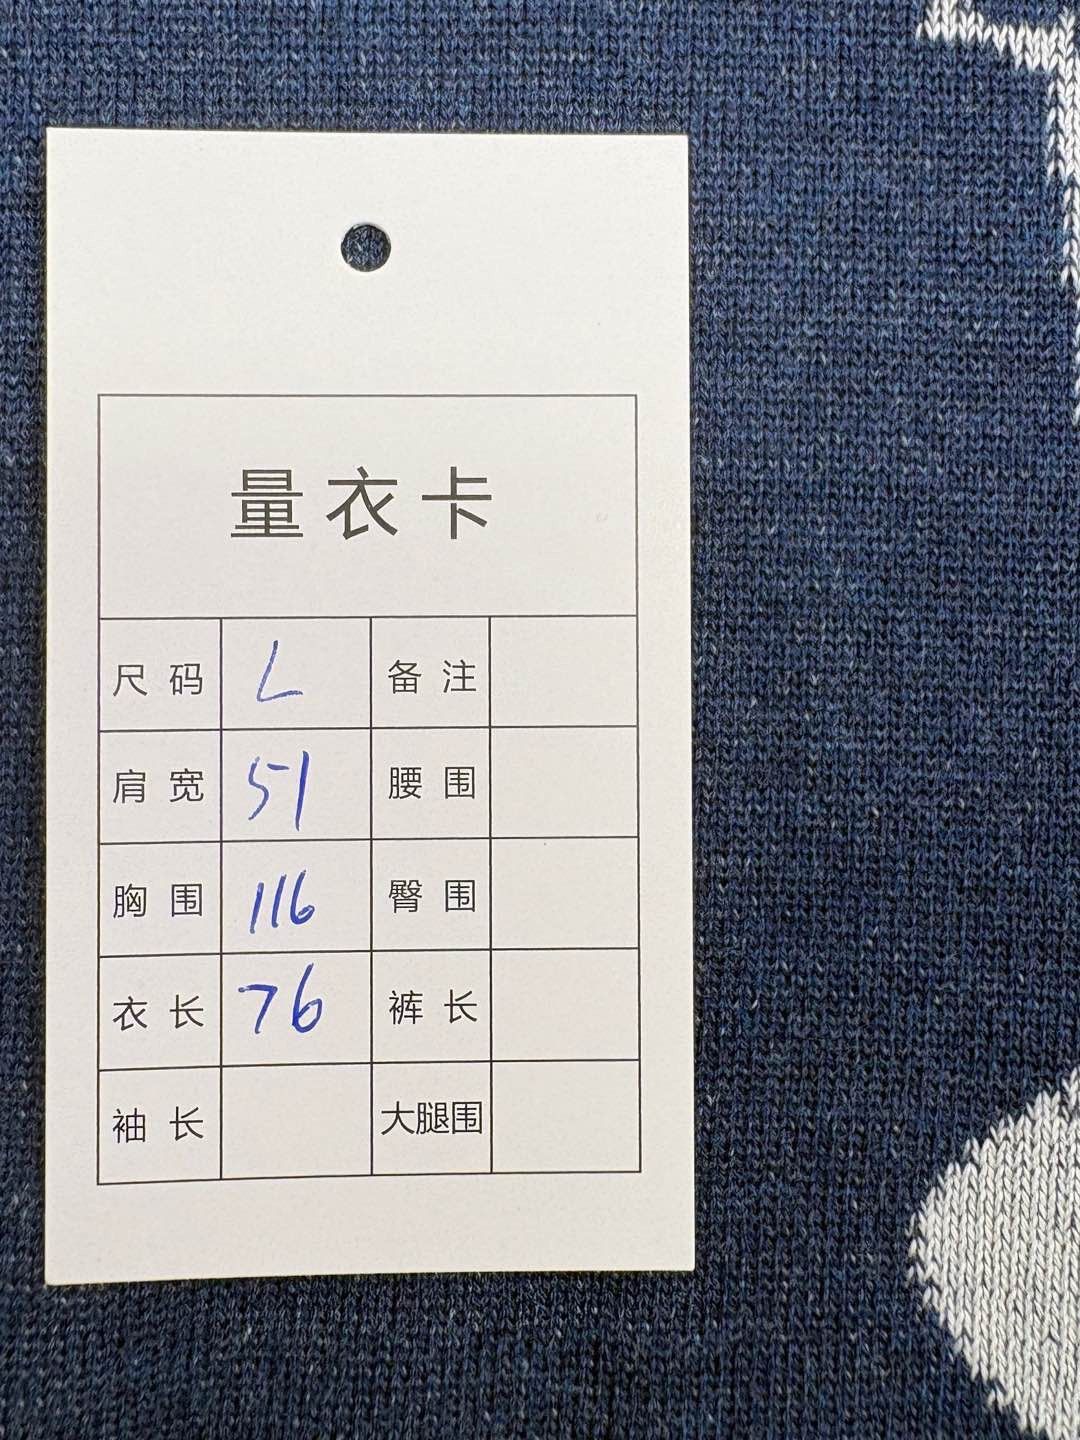 量衣卡
尺码 L 备注
肩宽 51 腰围
胸围 116 臀围
衣长 76 裤长
袖长 大腿围